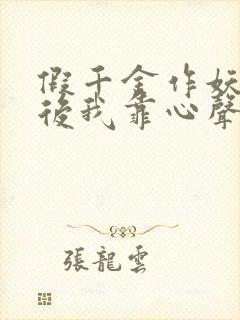 假千金作妖
後我靠心聲
張龍雲